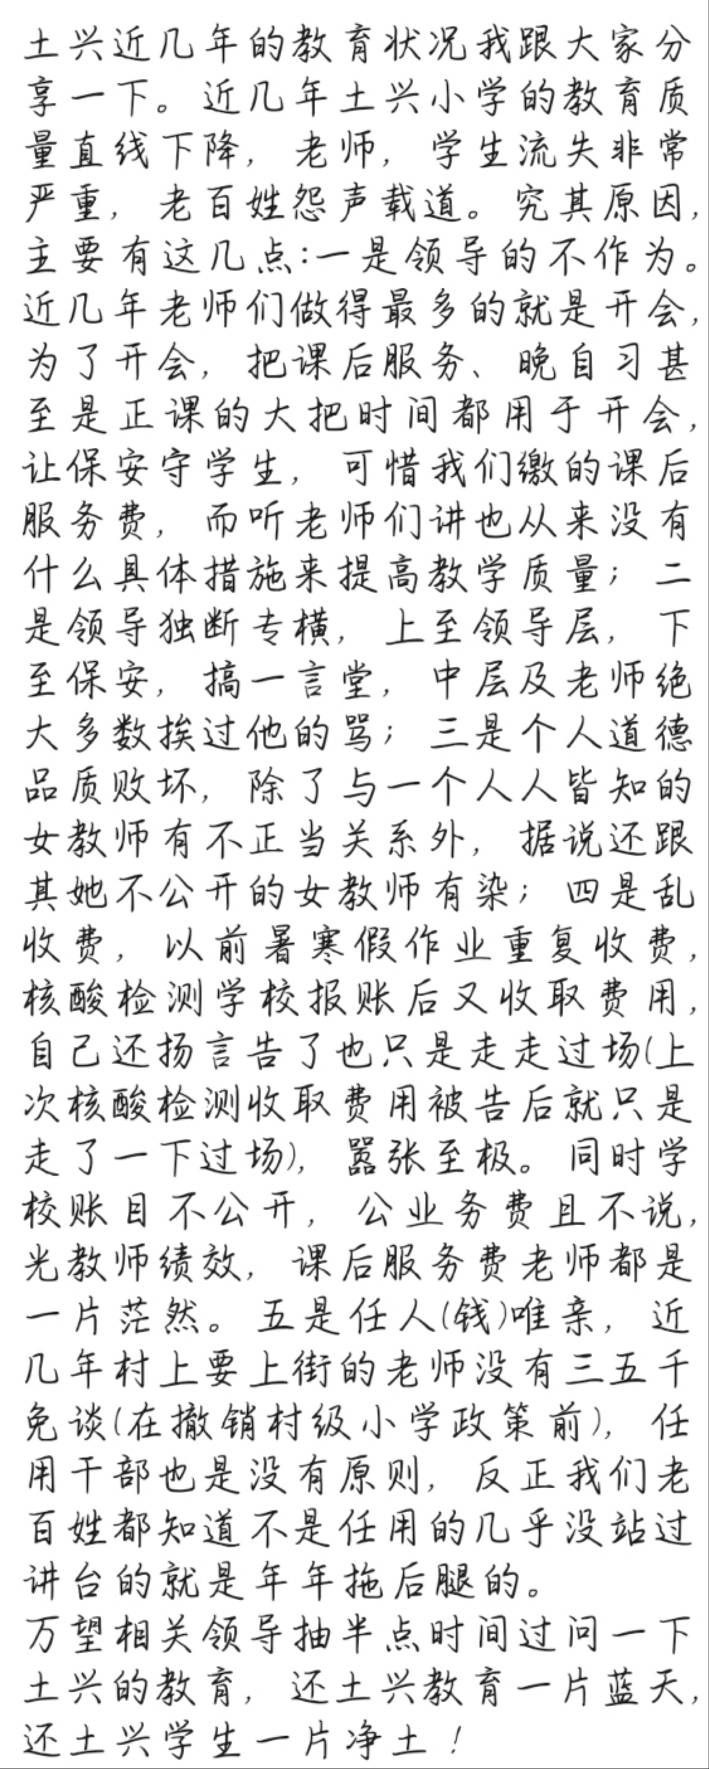 土兴近几年的教育状况我跟大家分
享一下。近几年土兴小学的教育质
量直线下降，老师，学生流失非常
严重，老百姓怨声载道。究其原因，
主要有这几点：一是领导的不作为。
近几年老师们做得最多的就是开会，
为了开会，把课后服务、晚自习甚
至是正课的大把时间都用于开会，
让保安守学生，可惜我们缴的课后
服务费，而听老师们讲也从来没有
什么具体措施来提高教学质量；二
是领导独断专横，上至领导层，下
至保安，搞一言堂，中层及老师绝
大多数挨过他的骂；三是个人道德
品质败坏，除了与一个人人皆知的
女教师有不正当关系外，据说还跟
其她不公开的女教师有染；四是乱
收费，以前暑寒假作业重复收费，
核酸检测学校报账后又收取费用，
自己还扬言告了也只是走走过场(上
次核酸检测收取费用被告后就只是
走了一下过场)，嚣张至极。同时学
校账目不公开，公业务费且不说，
光教师绩效，课后服务费老师都是
一片茫然。五是任人(钱)唯亲，近
几年村上要上街的老师没有三五千
免谈(在撤销村级小学政策前)，任
用干部也是没有原则，反正我们老
百姓都知道不是任用的几乎没站过
讲台的就是年年拖后腿的。
万望相关领导抽半点时间过问一下
土兴的教育，还土兴教育一片蓝天，
还土兴学生一片净土！